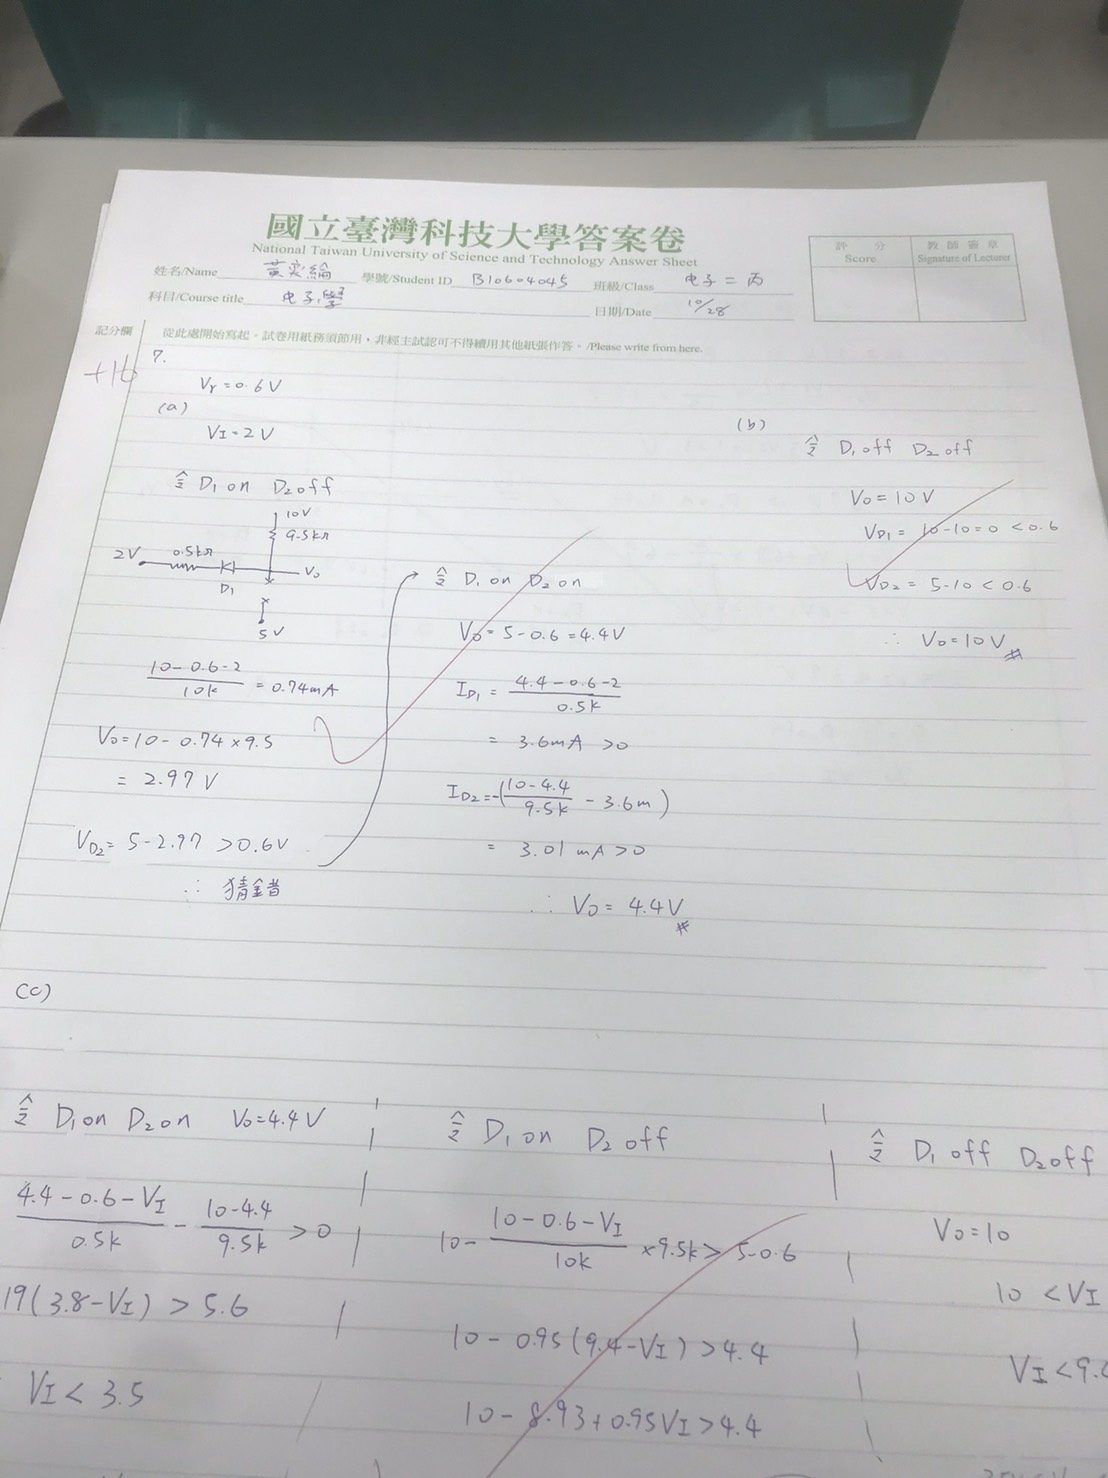 國立臺灣科技大學答案卷
National Taiwan University of Science and Technology Answer Sheet
評 分
Score
教師簽章
Signature of Lecturer
姓名/Name 黃奕綸 學號/Student ID B10604045 班級/Class 电子二丙
科目/Course title 电子學 日期/Date 10/28
記分欄 從此處開始寫起。試卷用紙務須節用,非經主試認可不得續用其他紙張作答。/Please write from here.
+16
7.
Vγ=0.6V
(a)
VI=2V
令 D1 on D2 off
10V
9.5kΩ
2V 0.5kΩ
D1
Vo
5V
(10-0.6-2)/10k = 0.74mA
Vo=10-0.74×9.5
= 2.97V
VD2= 5-2.97 >0.6V
∴ 猜錯
令 D1 on D2 on
Vo= 5-0.6=4.4V
ID1 = (4.4-0.6-2)/0.5k
= 3.6mA >0
ID2=-((10-4.4)/9.5k - 3.6m)
= 3.01 mA>0
∴ Vo= 4.4V #
(b)
令 D1 off D2 off
Vo=10V
VD1= 10-10=0 <0.6
VD2= 5-10 <0.6
∴ Vo=10V #
(c)
令 D1 on D2 on Vo=4.4V
(4.4-0.6-VI)/0.5k - (10-4.4)/9.5k >0
19(3.8-VI) > 5.6
VI< 3.5
令 D1 on D2 off
10- (10-0.6-VI)/10k ×9.5k> 5-0.6
10- 0.95(9.4-VI)>4.4
10- 8.93+0.95VI>4.4
令 D1 off D2 off
Vo=10
10 <VI
VI<9.